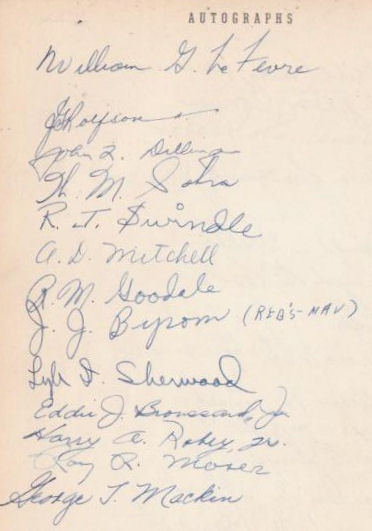 AUTOGRAPHS
William G. LeFevre
John L.
R. T. Swindle
A. D. Mitchell
R. M. Goodale
J. J. Byrom (REB'S-NAV)
Lyle D. Sherwood
Eddie J. Broussard, Jr.
Harry A. Robey, Jr.
Ray R. Moser
George T. Mackin